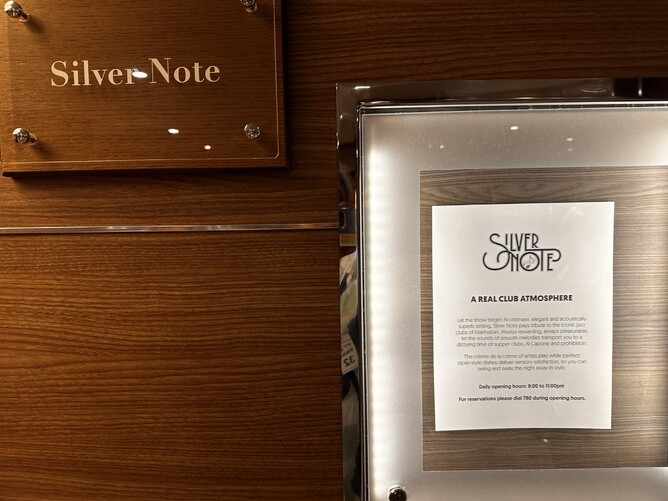 Silver Note
SILVER
NOTE
A REAL CLUB ATMOSPHERE
Let the show begin! An intimate, elegant and acoustically
superb setting, Silver Note pays tribute to the iconic jazz
clubs of Manhattan. Always rewarding, always pleasurable,
let the sounds of smooth melodies transport you to a
dizzying time of supper clubs, Al Capone and prohibition.
The crème de la crème of artists play while perfect
tapas-style dishes deliver sensory satisfaction, so you can
swing and sway the night away in style.
Daily opening hours: 8:00 to 11:00pm
For reservations please dial 780 during opening hours.
32